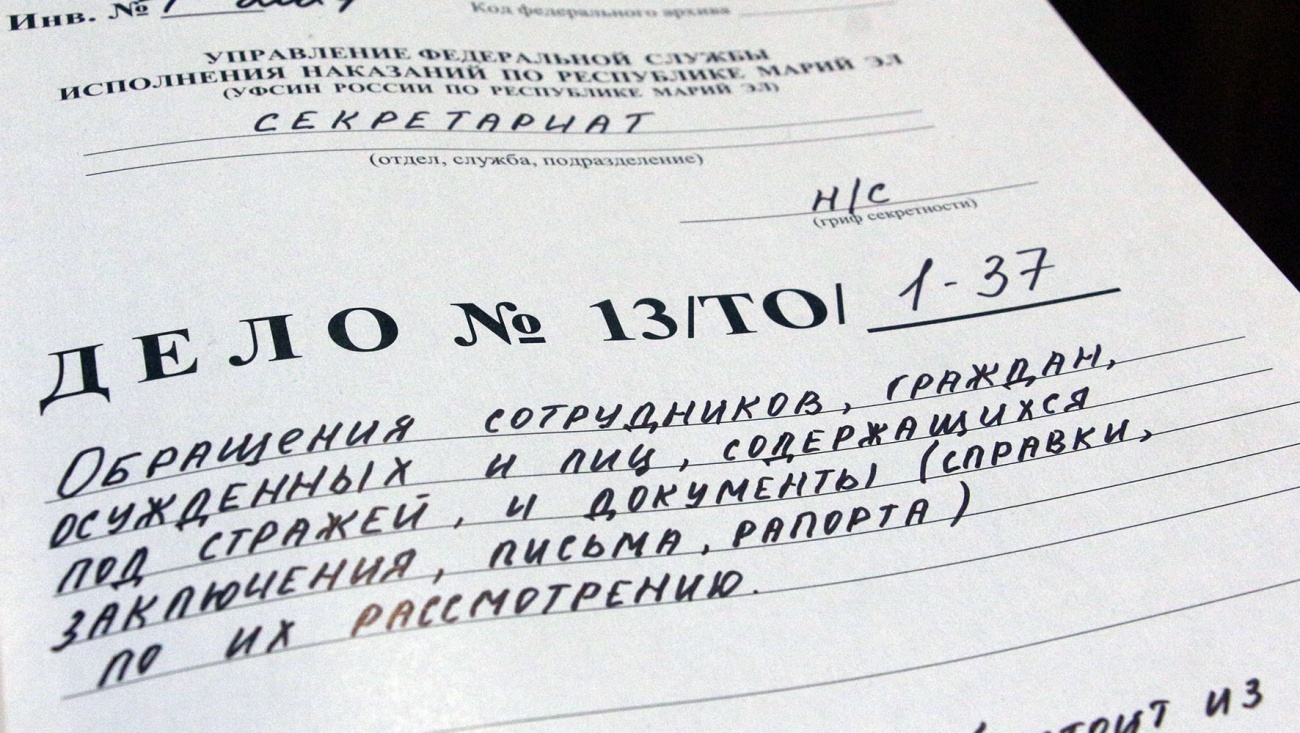 Инв. №
Код федерального архива
УПРАВЛЕНИЕ ФЕДЕРАЛЬНОЙ СЛУЖБЫ
ИСПОЛНЕНИЯ НАКАЗАНИЙ ПО РЕСПУБЛИКЕ МАРИЙ ЭЛ
(УФСИН РОССИИ ПО РЕСПУБЛИКЕ МАРИЙ ЭЛ)
СЕКРЕТАРИАТ
(отдел, служба, подразделение)
Н/С
(гриф секретности)
ДЕЛО № 13/ТО/ 1-37
ОБРАЩЕНИЯ СОТРУДНИКОВ, ГРАЖДАН,
ОСУЖДЕННЫХ И ЛИЦ, СОДЕРЖАЩИХСЯ
ПОД СТРАЖЕЙ, И ДОКУМЕНТЫ (СПРАВКИ,
ЗАКЛЮЧЕНИЯ, ПИСЬМА, РАПОРТА)
ПО ИХ РАССМОТРЕНИЮ.
ИЗ